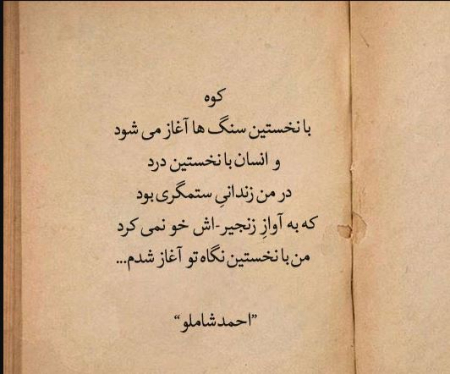 کوه
با نخستین سنگ ها آغاز می شود
و انسان با نخستین درد
در من زندانیِ ستمگری بود
که به آوازِ زنجیر-اش خو نمی کرد
من با نخستین نگاه تو آغاز شدم...
"احمد شاملو"